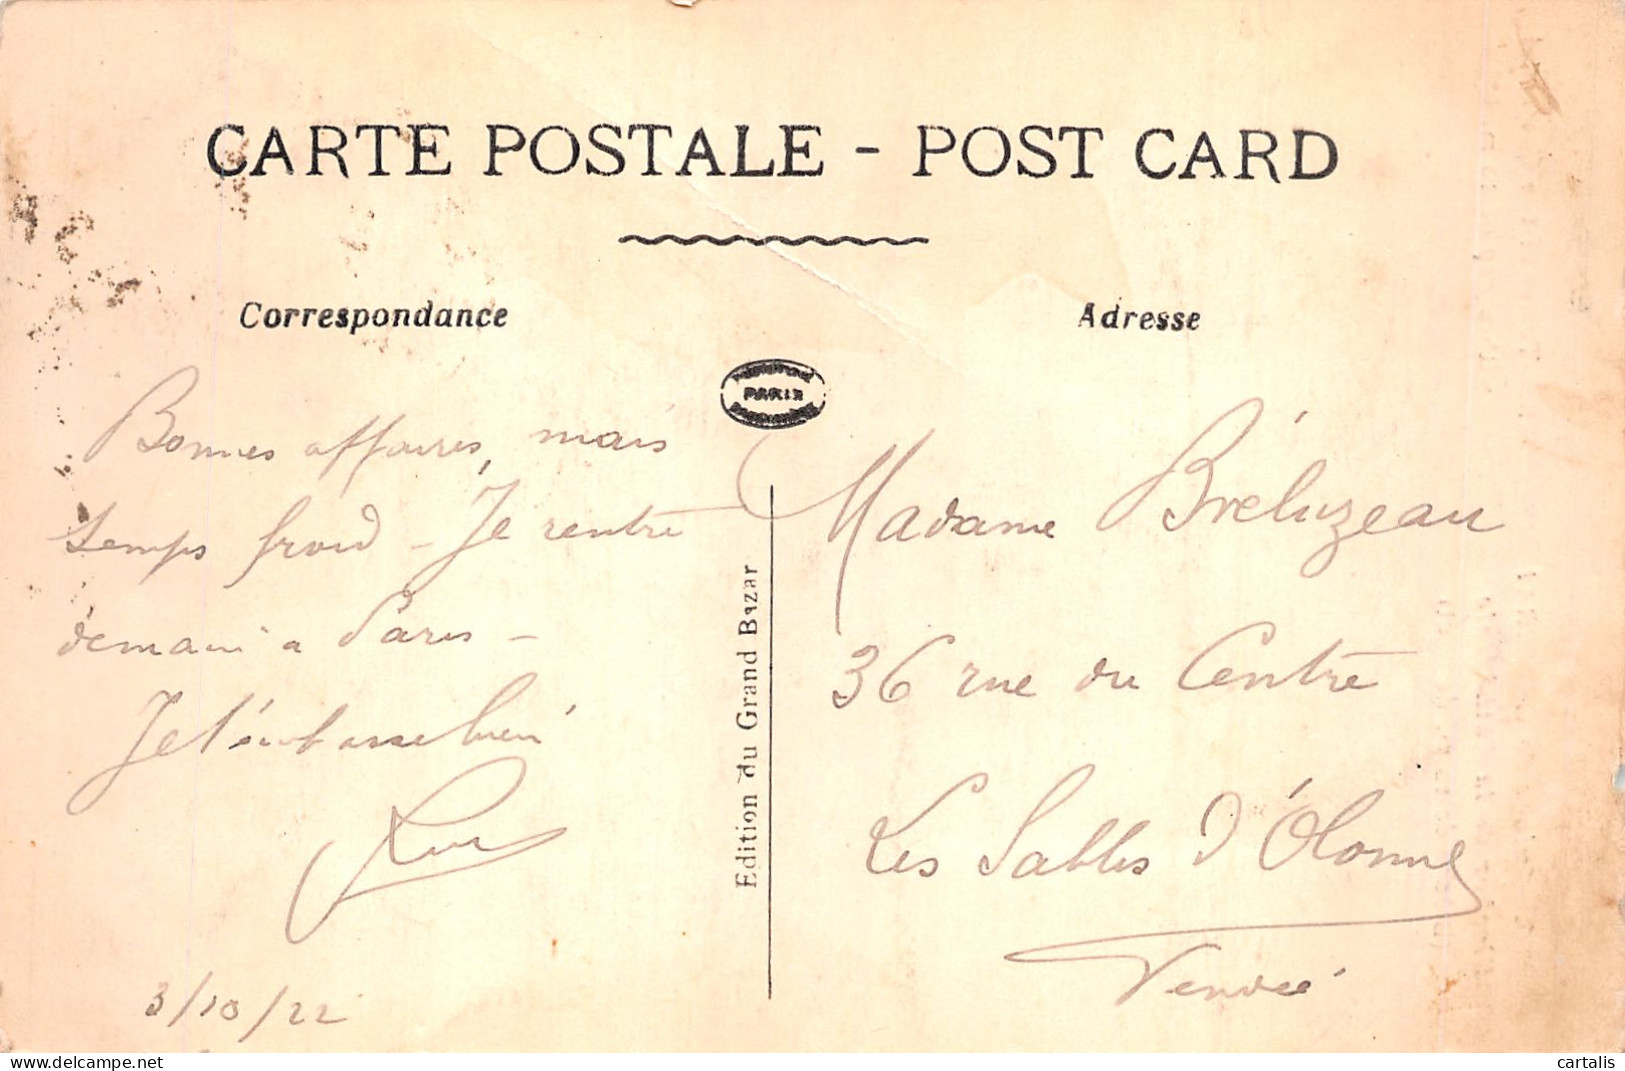 CARTE POSTALE - POST CARD
Correspondance
Adresse
PARIS
Bonnes affaires, mais
temps froid - Je rentre
demain à Paris -
Je t'embrasse bien
3/10/22
Edition du Grand Bazar
Madame Bréluzeau
36 rue du Centre
Les Sables d'Olonne
Vendée
delcampe.net
cartalis